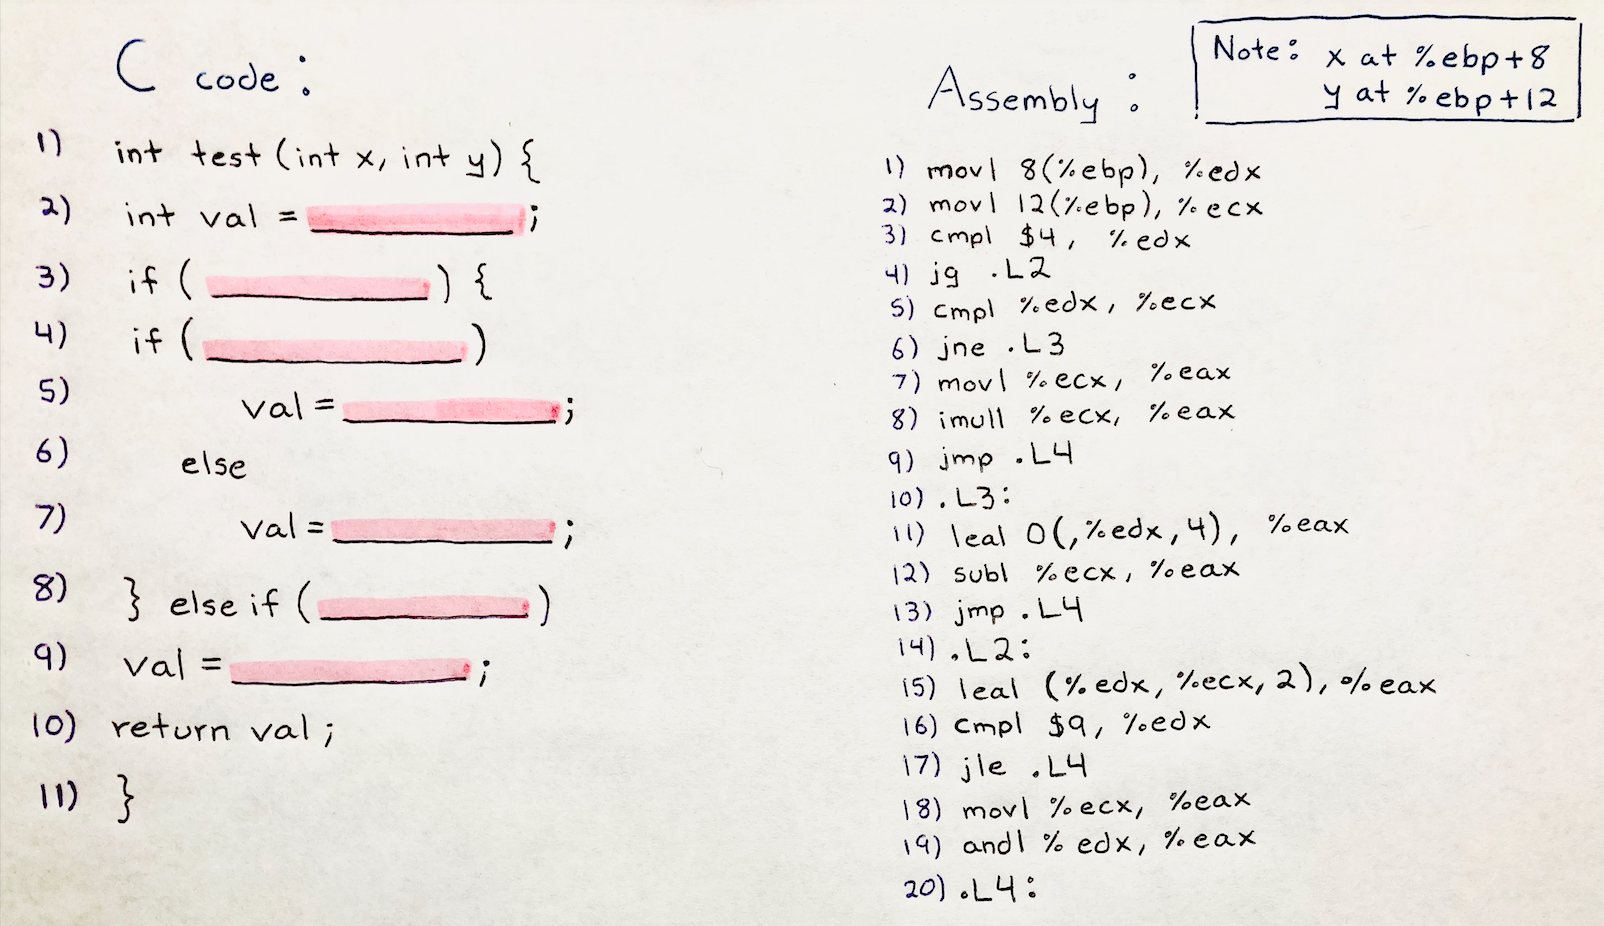 C code:
1) int test (int x, int y) {
2) int val = ;
3) if ( ) {
4) if ( )
5) val = ;
6) else
7) val = ;
8) } else if ( )
9) val = ;
10) return val;
11) }
Assembly:
Note: x at %ebp+8
y at %ebp+12
1) movl 8(%ebp), %edx
2) movl 12(%ebp), %ecx
3) cmpl $4, %edx
4) jg .L2
5) cmpl %edx, %ecx
6) jne .L3
7) movl %ecx, %eax
8) imull %ecx, %eax
9) jmp .L4
10) .L3:
11) leal 0(,%edx,4), %eax
12) subl %ecx, %eax
13) jmp .L4
14) .L2:
15) leal (%edx,%ecx,2), %eax
16) cmpl $9, %edx
17) jle .L4
18) movl %ecx, %eax
19) andl %edx, %eax
20) .L4: